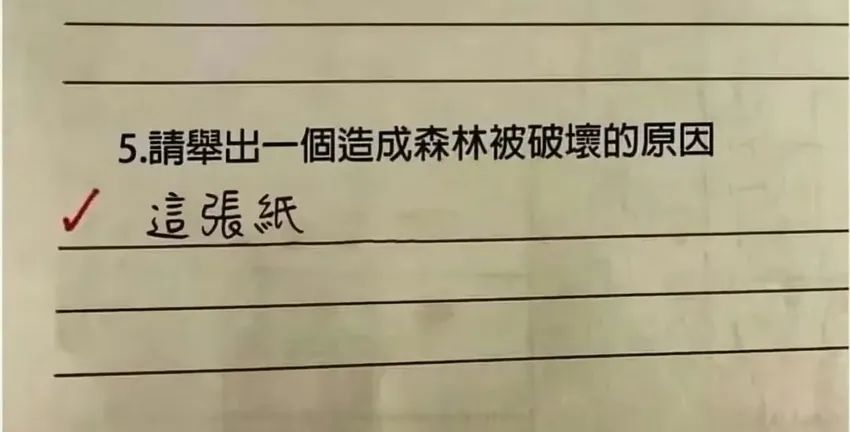 5.請舉出一個造成森林被破壞的原因
✓ 這張紙